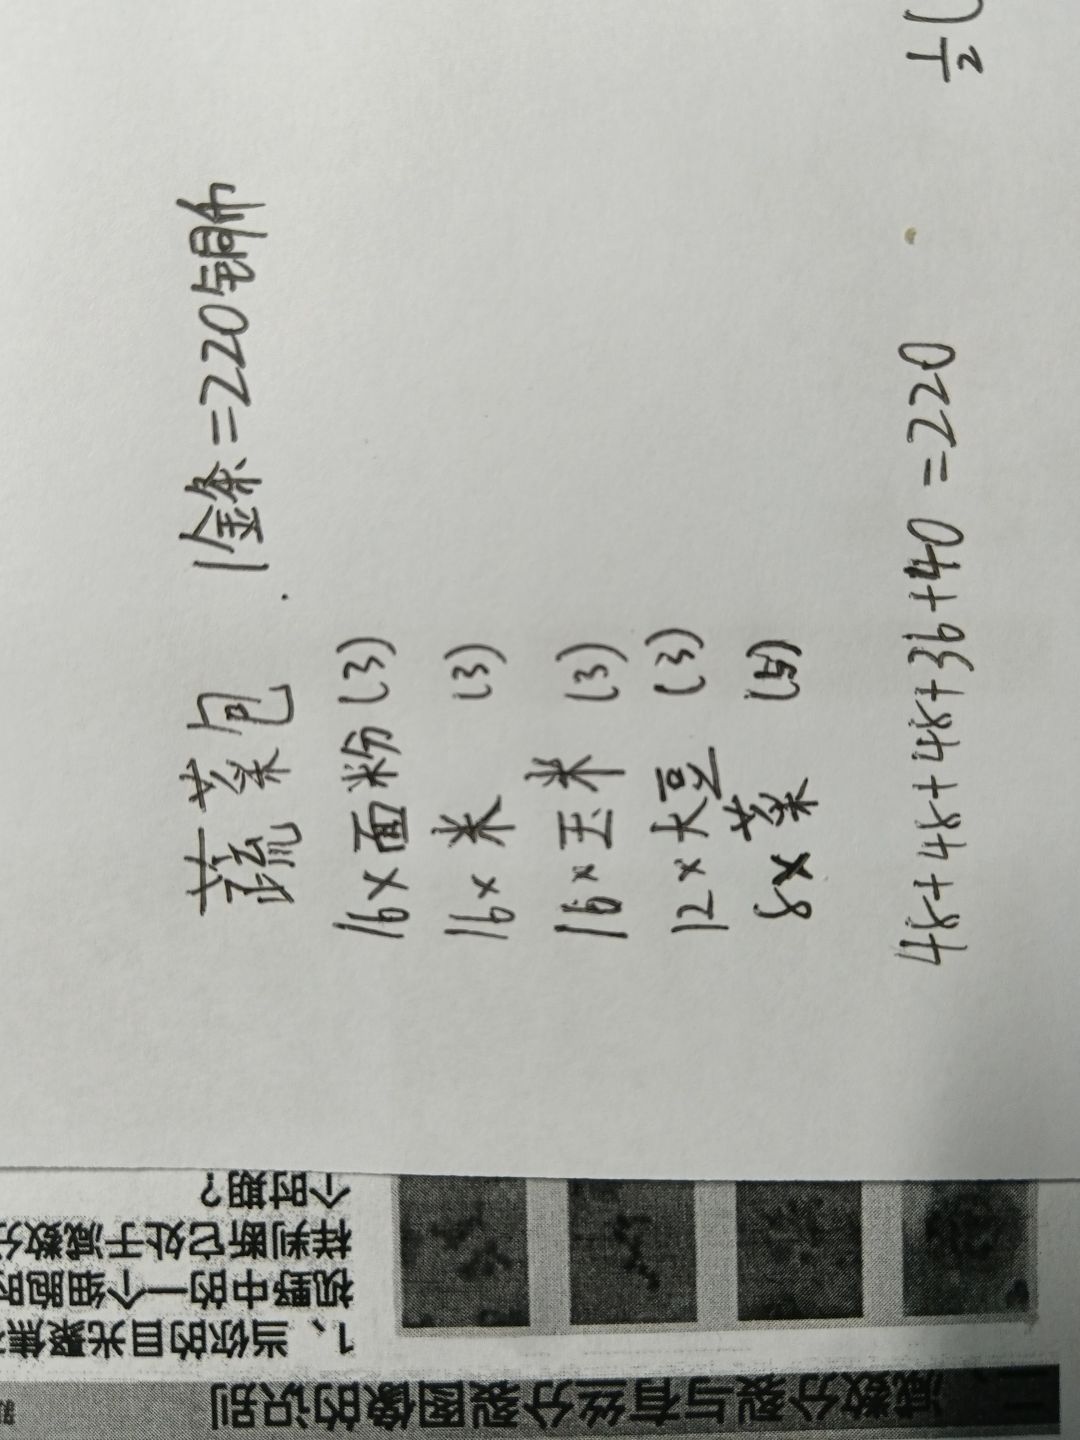 蔬菜包 1金条=220铜币
16×面粉 (3)
16×米 (3)
16×玉米 (3)
12×大豆 (3)
8×菜 (5)
48+48+48+36+40=220
1/2 (
二、减数分裂与有丝分裂图像的识别
1、当你的目光聚焦
视野中的一个细胞时
样判断它处于减数分
个时期?